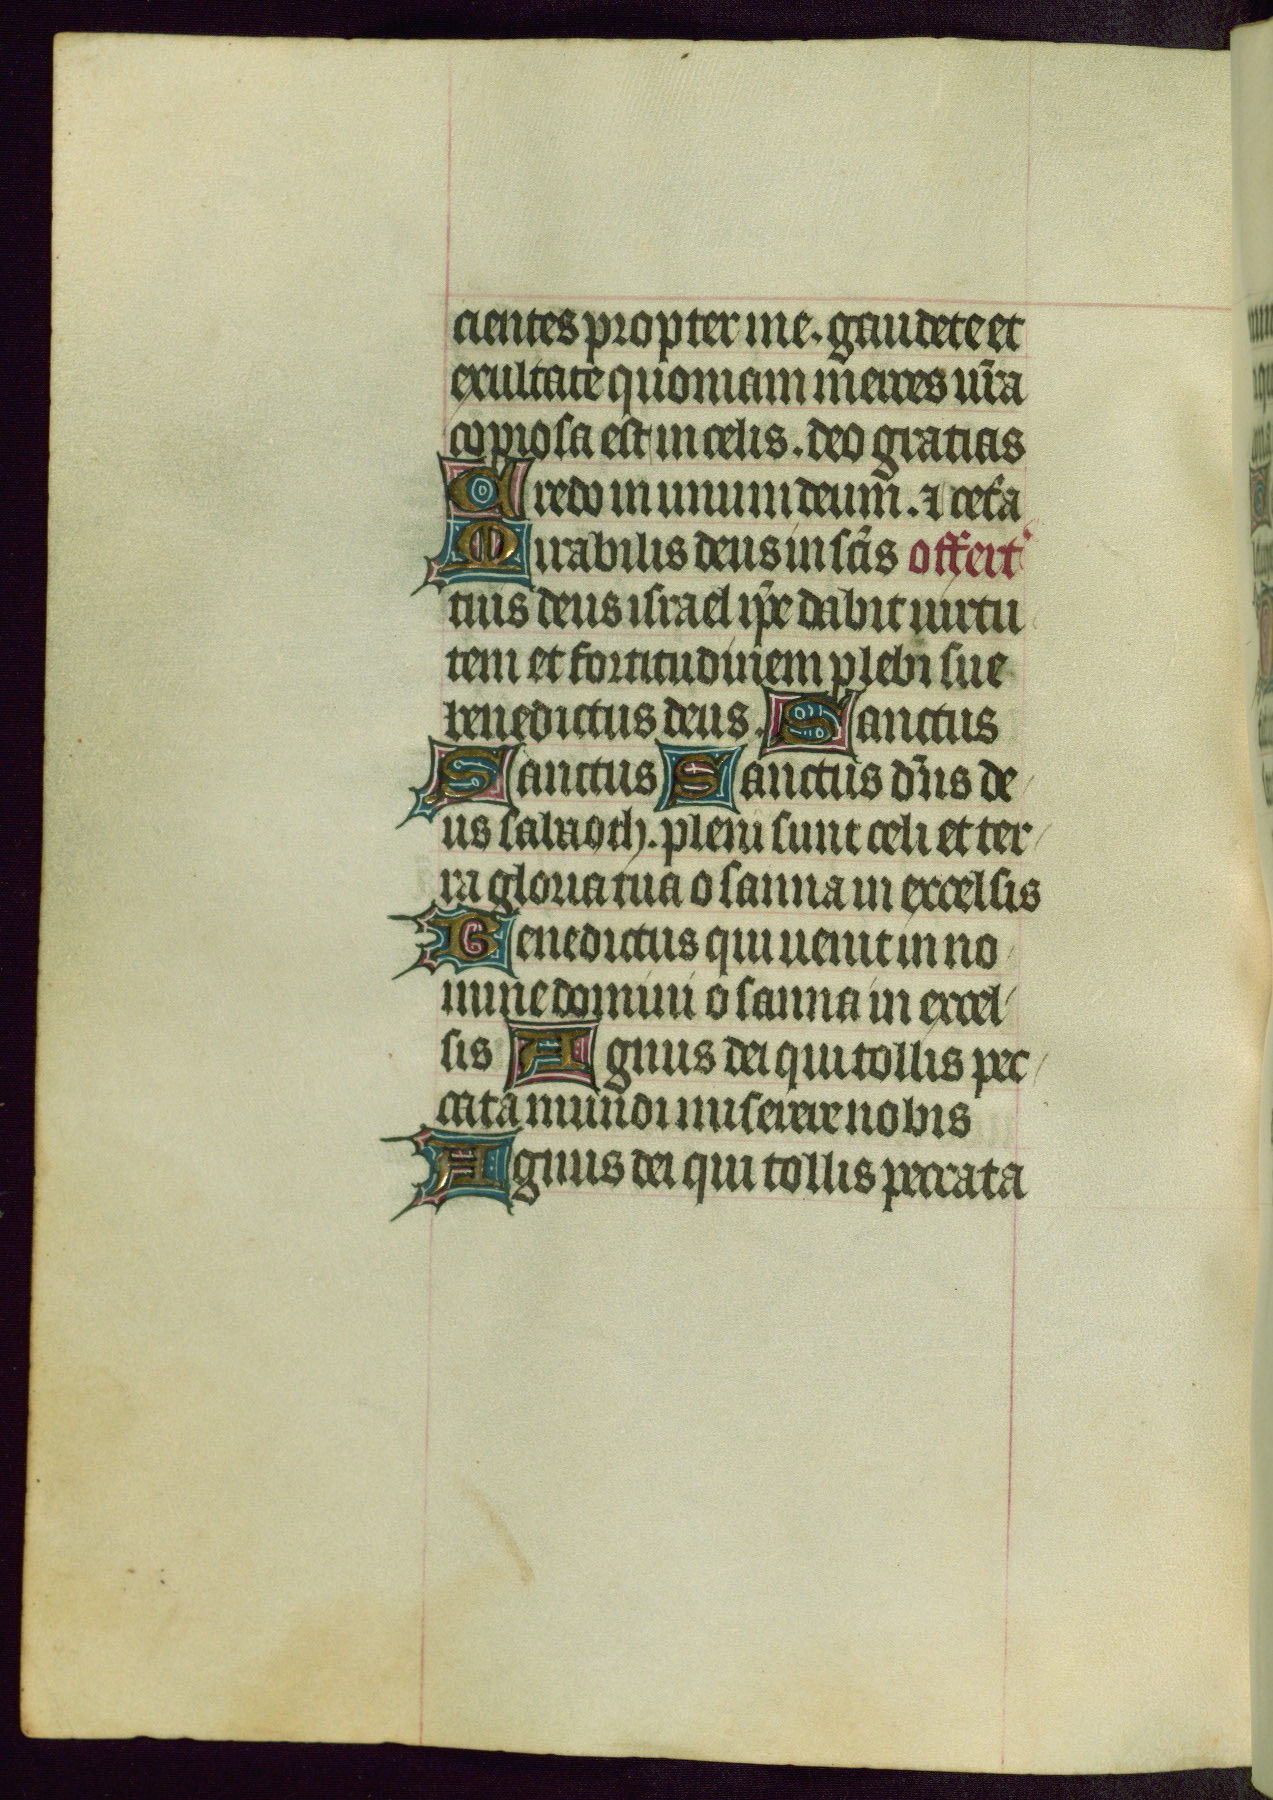 cientes propter me. gaudete et
exultate quoniam merces vr̄a
copiosa est in celis. deo gratias
Credo in unum deum. ⁊ cet̃a
Mirabilis deus in sc̄is offert'
tuis deus israel ip̄e dabit uirtu
tem et fortitudinem plebi sue
benedictus deus. Sanctus
Sanctus Sanctus dn̄s de
us sabaoth. pleni sunt celi et ter
ra gloria tua osanna in excelsis
Benedictus qui uenit in no
mine domini osanna in excel
sis Agnus dei qui tollis pec
cata mundi miserere nobis
Agnus dei qui tollis peccata